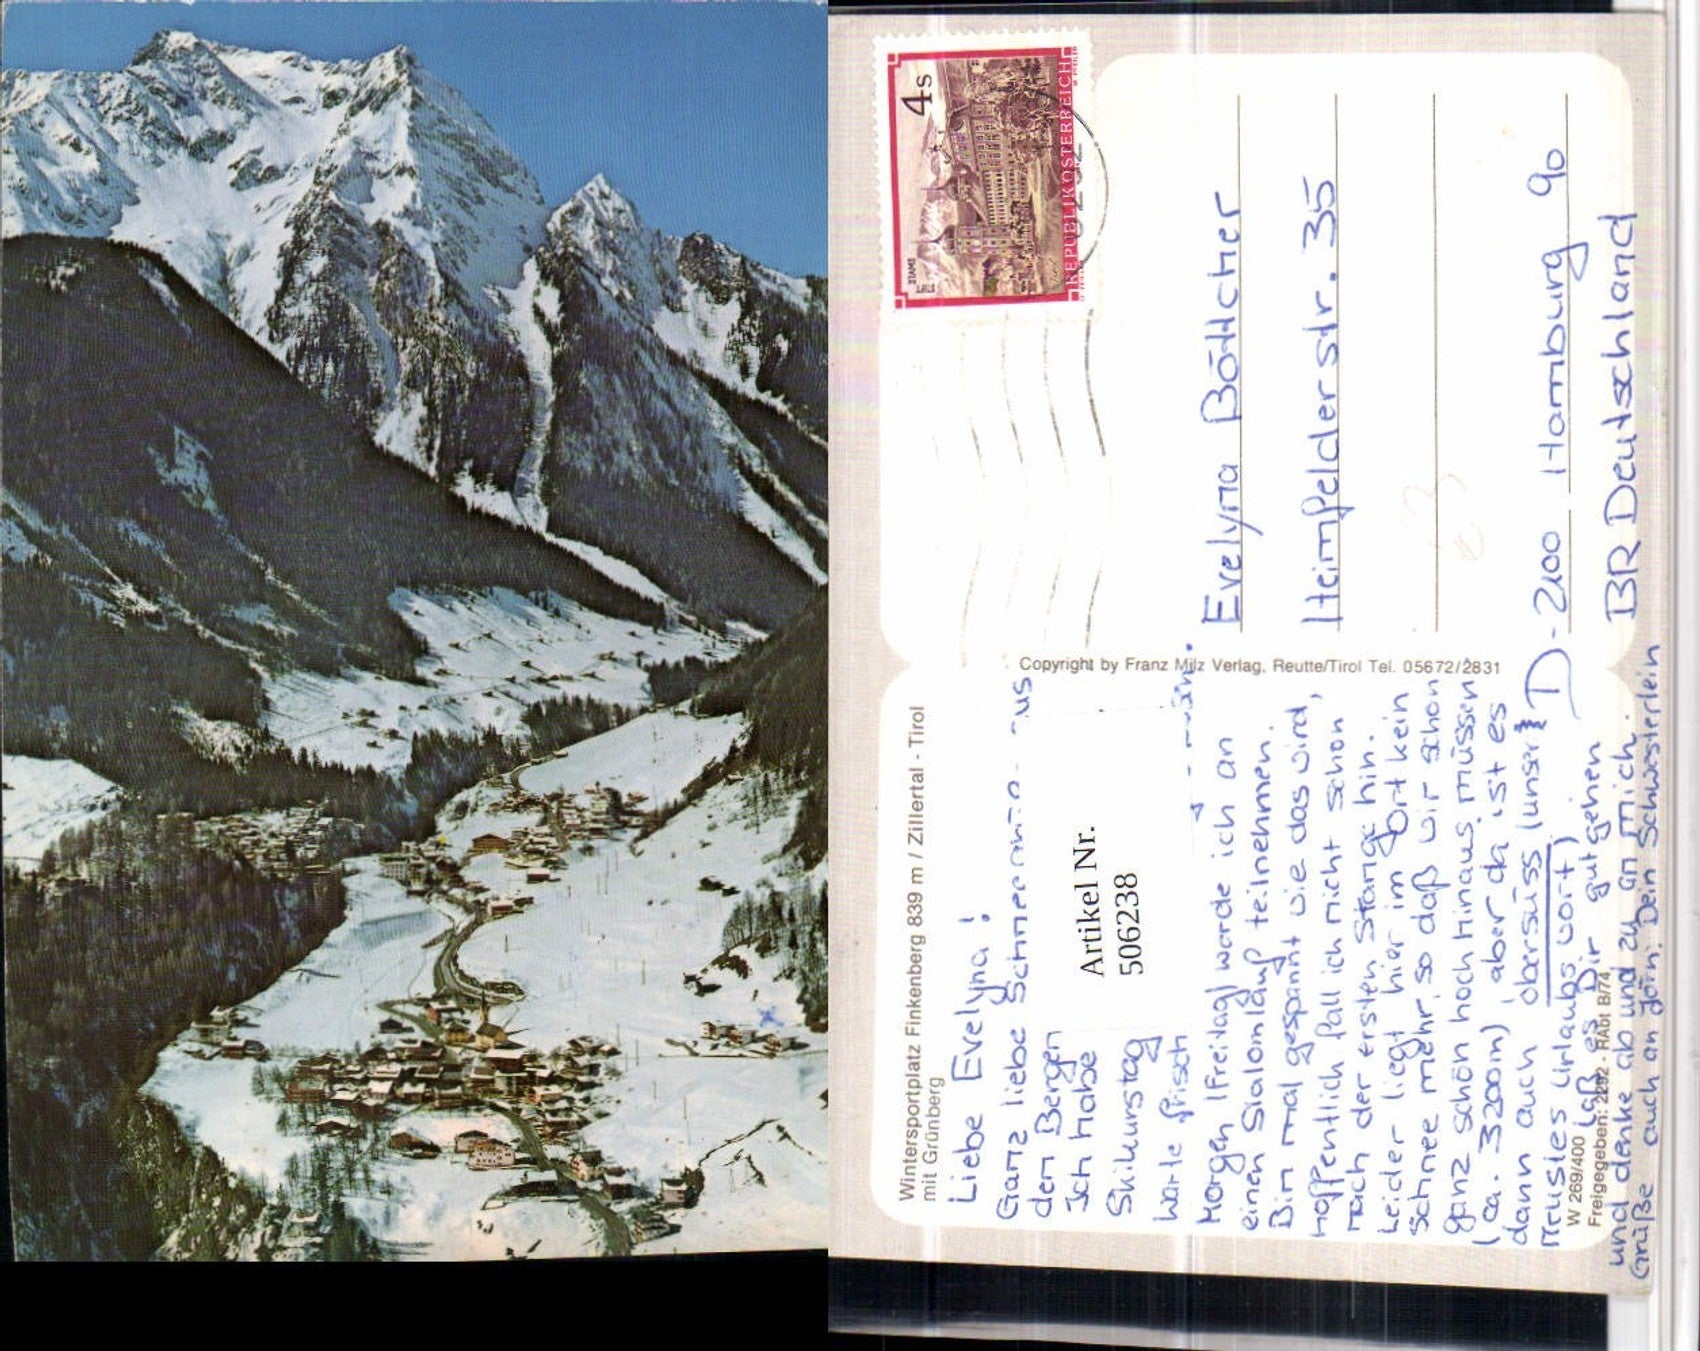 Wintersportplatz Finkenberg 839 m / Zillertal - Tirol
mit Grünberg
Liebe Evelyna!
Ganz liebe aus
den Bergen
Ich habe
Skikurstag
frisch
Morgen (Freitag) werde ich an
einen Slalomlauf teilnehmen.
Bin mal gespannt wie das wird,
hoffentlich fall ich nicht schon
nach der ersten Stange hin.
Leider liegt hier im Ort kein
Schnee mehr, so daß wir schon
ganz schön hoch hinaus müssen
(ca. 3200m), aber da ist es
dann auch obersüss (unser
neustes Urlaubswort)
Laß es Dir gutgehen
und denke ab und zu an mich.
Grüße auch an Jörn. Dein Schwesterlein
W 269/400
Freigegeben: 2292 - RAbt B/74
Artikel Nr.
506238
Copyright by Franz Milz Verlag, Reutte/Tirol Tel. 05672/2831
4 S
REPUBLIK ÖSTERREICH
STIFT
STAMS
Evelyna Böttcher
Heimfelderstr. 35
D-2100 Hamburg 90
BR Deutschland